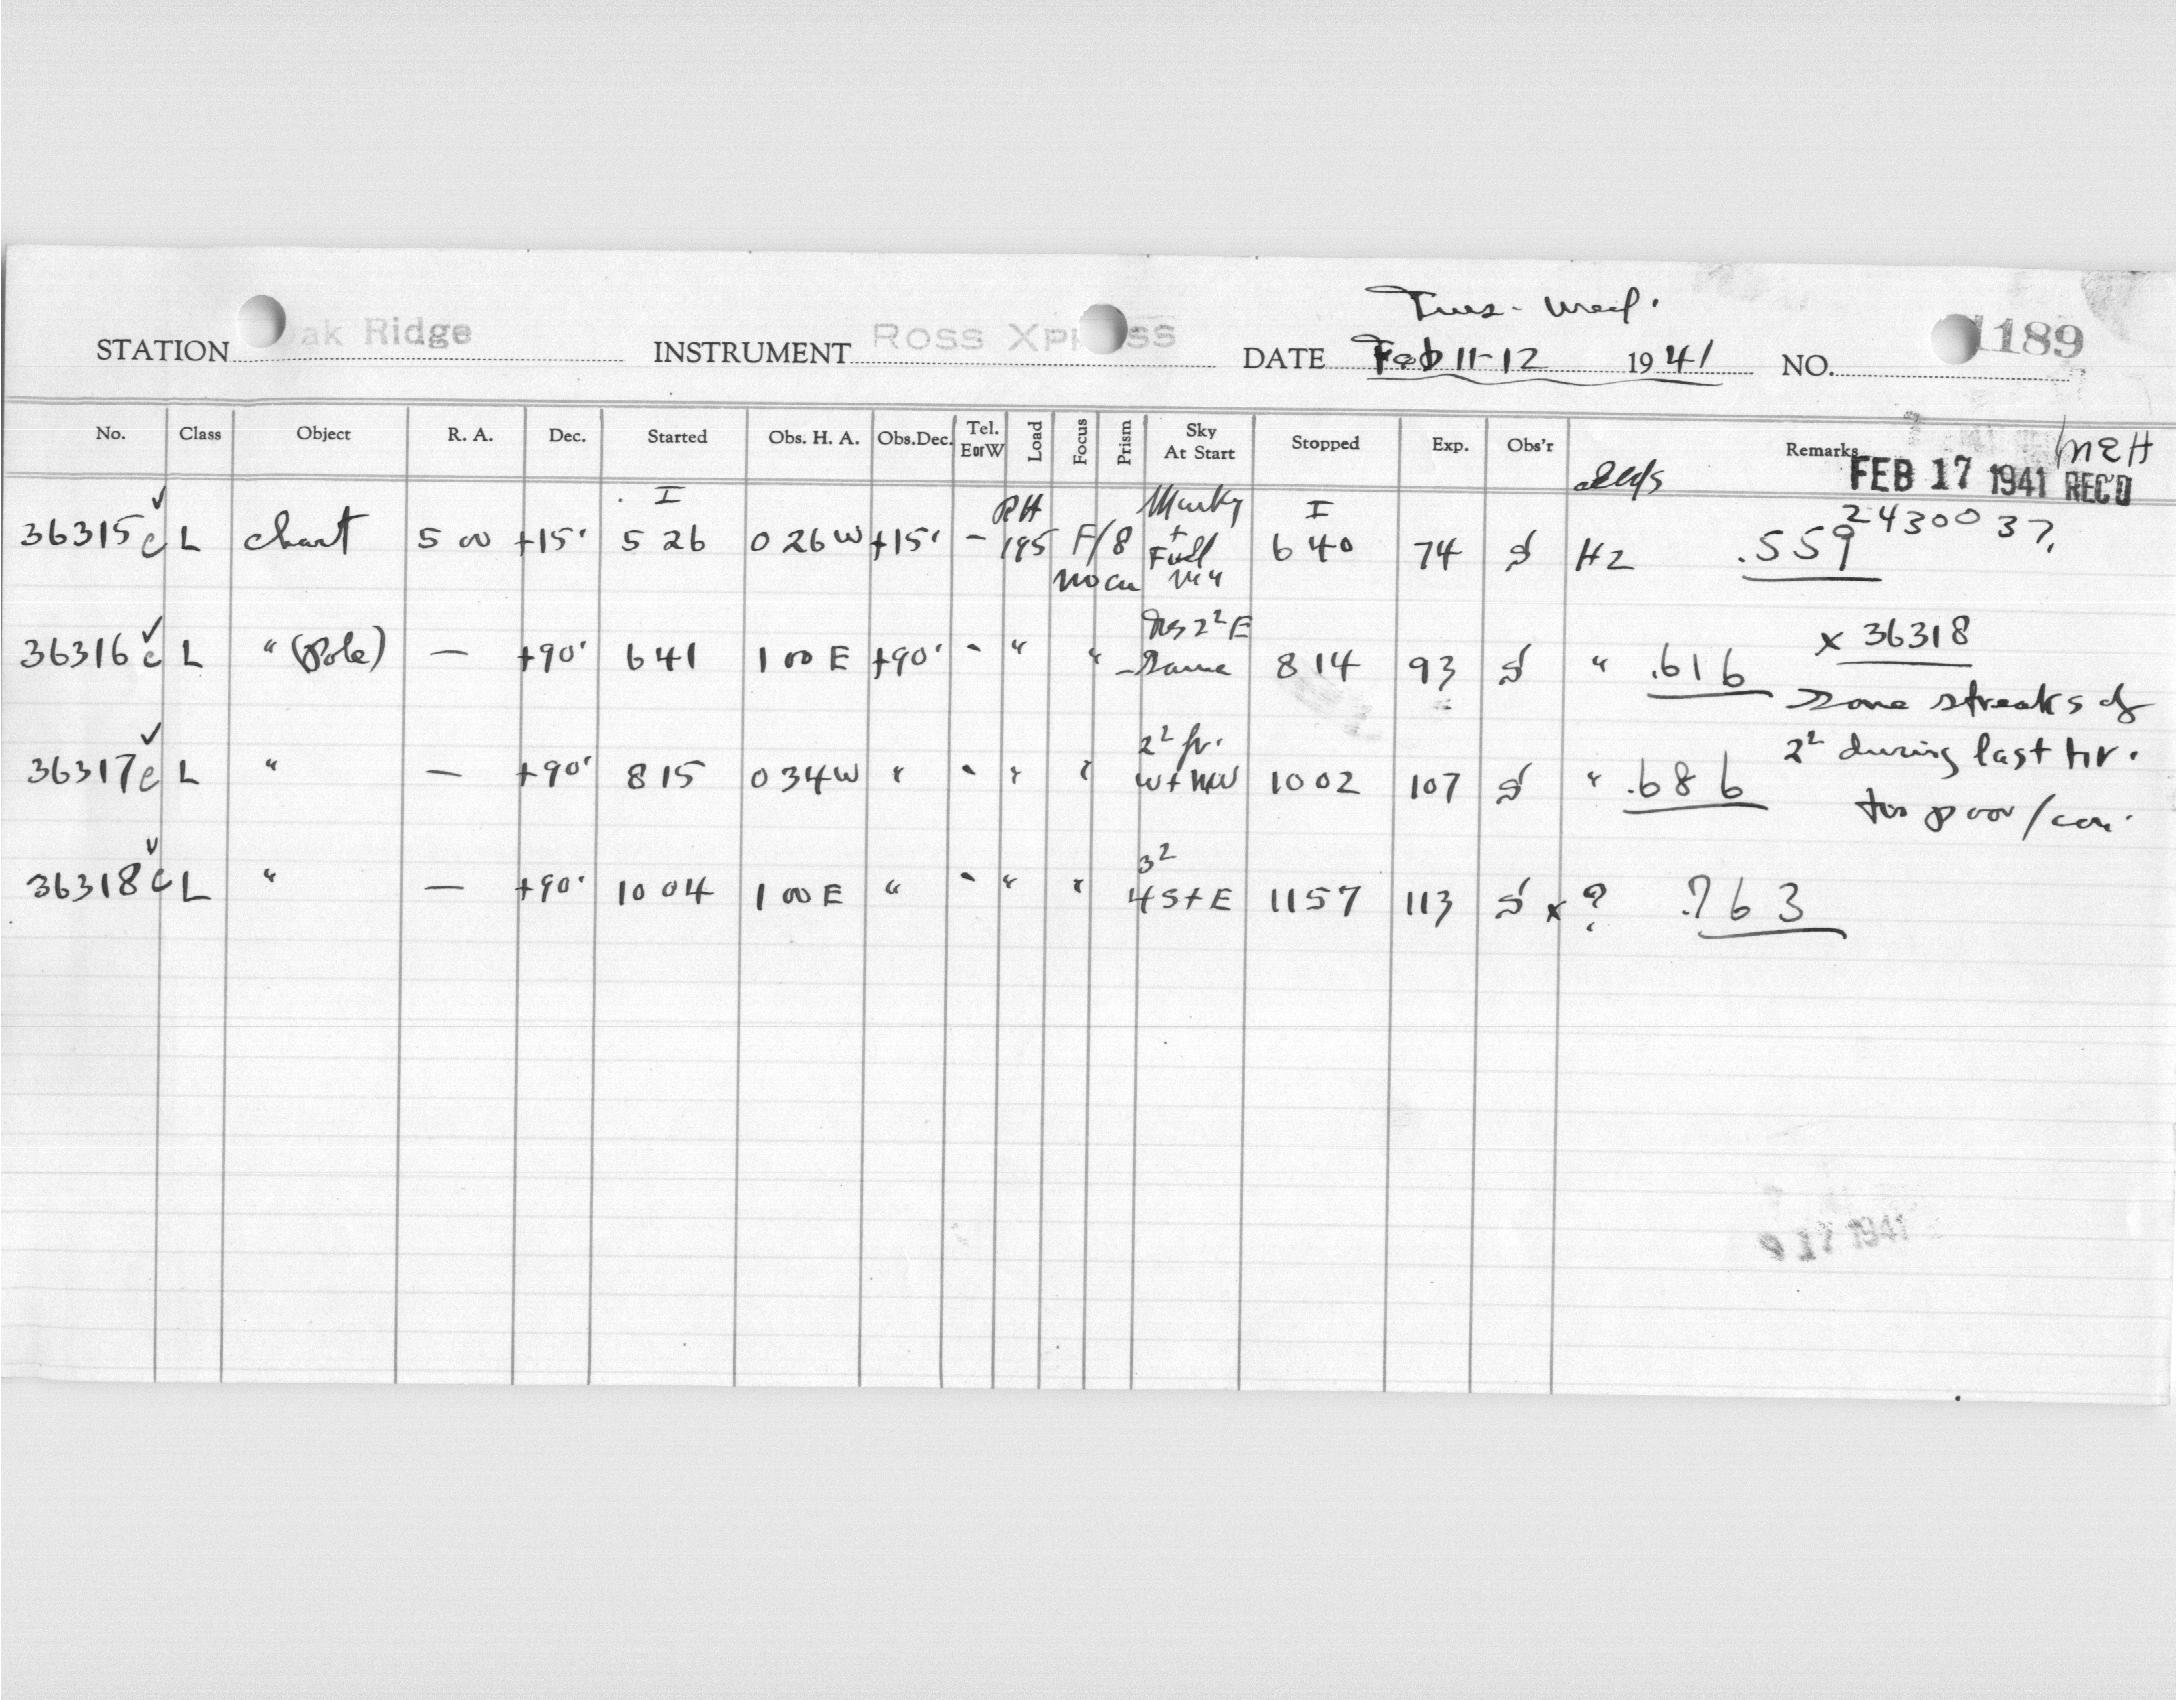 Tues - Wed.
STATION ak Ridge INSTRUMENT ROSS XP SS DATE Feb 11-12 1941 NO. 1189
No. Class Object R. A. Dec. Started Obs. H. A. Obs.Dec. Tel. EorW Load Focus Prism Sky At Start Stopped Exp. Obs'r Remarks MEH
FEB 17 1941 REC'D
I RH Murky I 2430037.
36315 c L chart 5 00 +15° 5 26 0 26 W +15° - 195 F/8 + Full 6 40 74 S H2 .559
no cu
2² E x 36318
36316 c L " (Pole) — +90° 6 41 1 00 E +90° - " " - Same 8 14 93 S " .616
Some streaks of
2² fr. 2² during last hr.
36317 c L " — +90° 8 15 0 34 W " " " " W + NW 10 02 107 S " .686
too poor /
3²
36318 c L " — +90° 10 04 1 00 E " " " " 4 S + E 11 57 113 S x ? .763
1941